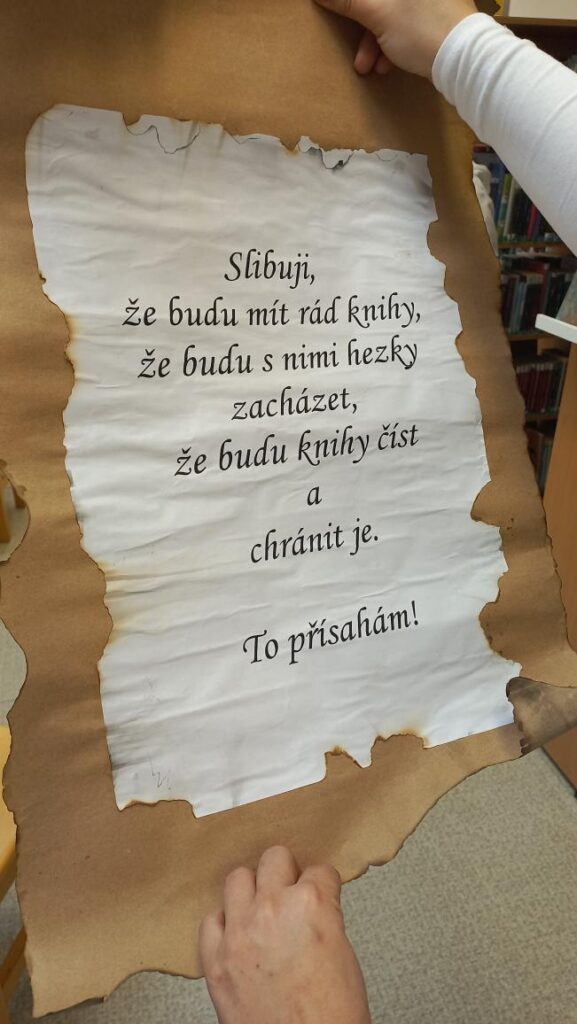 Slibuji,
že budu mít rád knihy,
že budu s nimi hezky
zacházet,
že budu knihy číst
a
chránit je.
To přísahám!